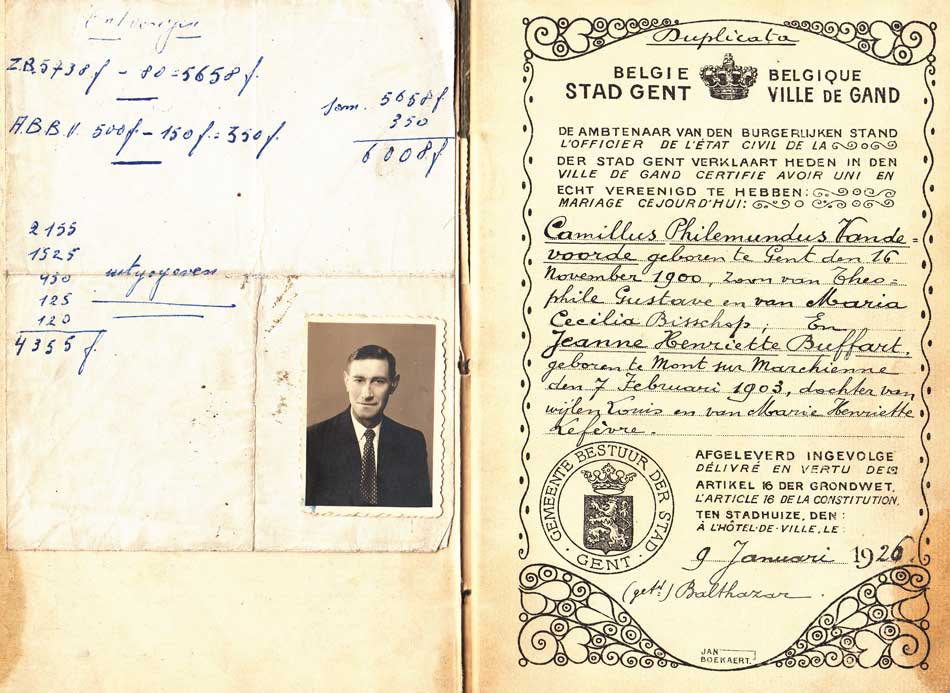 Ontvangen
Z.B. 5738 f - 80 = 5658 f.
Som. 5658 f
A.B.B.V. 500 f - 150 f. = 350 f.
350
6008 f
2155
1525
430
uitgegeven
125
120
4355 f.
Duplicata
BELGIE BELGIQUE
STAD GENT VILLE DE GAND
DE AMBTENAAR VAN DEN BURGERLIJKEN STAND
L'OFFICIER DE L'ÉTAT CIVIL DE LA
DER STAD GENT VERKLAART HEDEN IN DEN
VILLE DE GAND CERTIFIE AVOIR UNI EN
ECHT VEREENIGD TE HEBBEN:
MARIAGE CEJOURD'HUI:
Camillus Philemundus Vande-
voorde geboren te Gent den 16
November 1900, zoon van Theo-
phile Gustave en van Maria
Cecilia Bisschop, En
Jeanne Henriette Buffart,
geboren te Mont sur Marchienne
den 7 Februari 1903, dochter van
wijlen Louis en van Marie Henriette
Lefèvre.
GEMEENTE BESTUUR DER STAD
GENT
AFGELEVERD INGEVOLGE
DÉLIVRÉ EN VERTU DE
ARTIKEL 16 DER GRONDWET.
L'ARTICLE 16 DE LA CONSTITUTION.
TEN STADHUIZE, DEN:
À L'HÔTEL-DE-VILLE, LE:
9 Januari 1926.
(get.) Balthazar.
JAN
BOEKAERT.